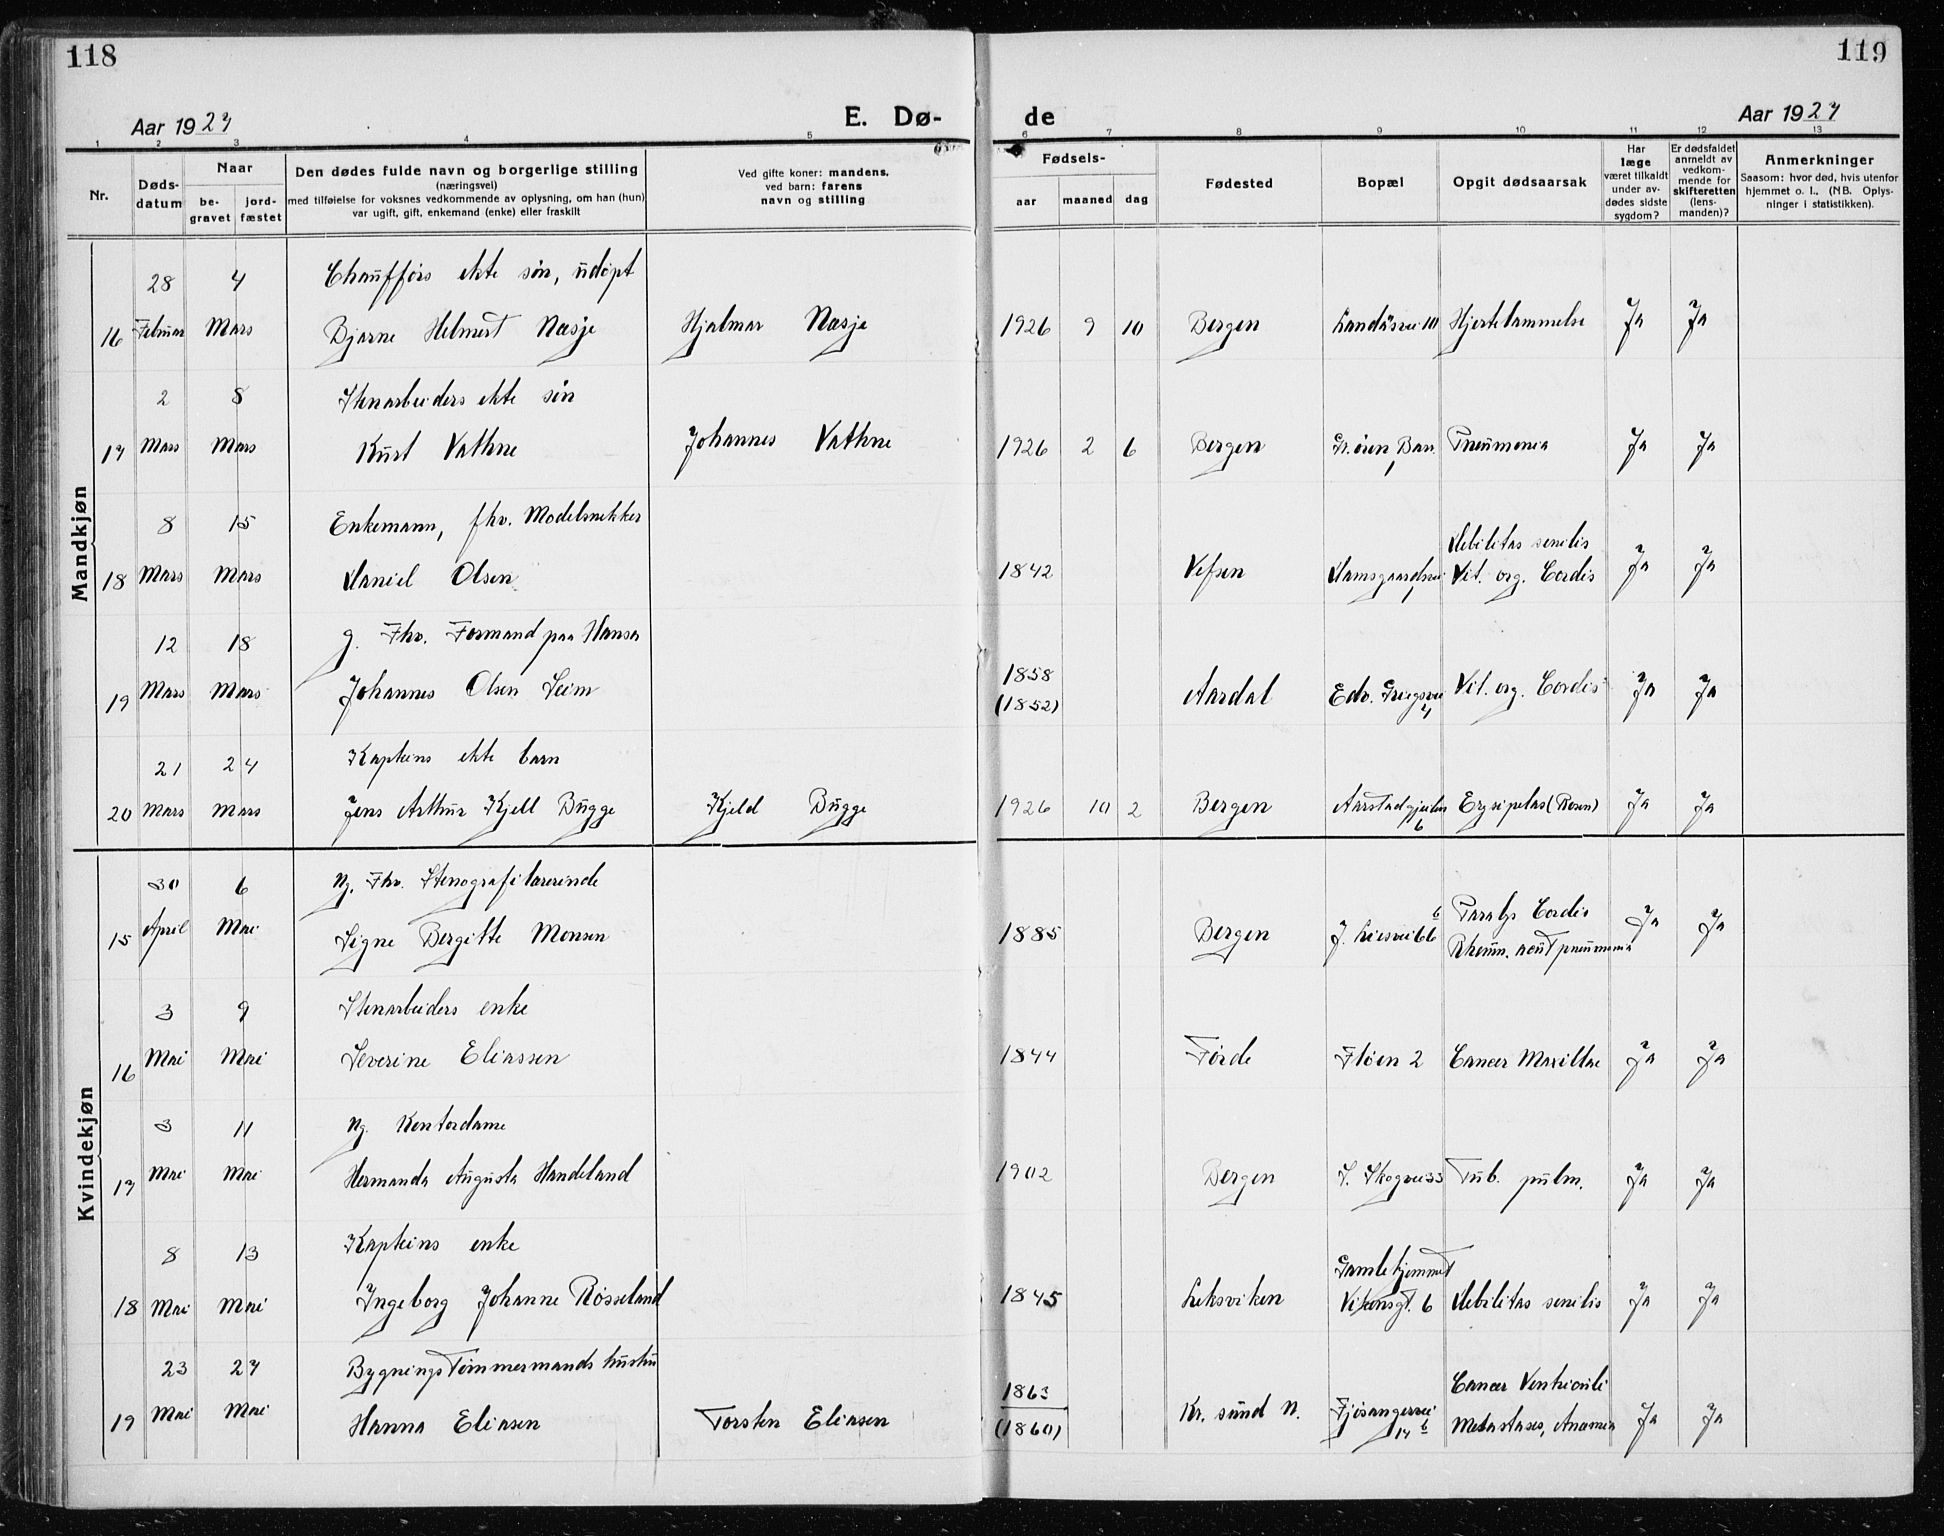 118
119
Aar 1927
E. Dø-
de
Aar 1927
1 2 3 4 5 6 7 8 9 10 11 12 13
Nr.
Døds-
datum
Naar
be-
gravet
jord-
fæstet
Den dødes fulde navn og borgerlige stilling
(næringsvei)
med tilføielse for voksnes vedkommende av oplysning, om han (hun)
var ugift, gift, enkemand (enke) eller fraskilt
Ved gifte koner: mandens,
ved barn: farens
navn og stilling
Fødsels-
aar maaned dag
Fødested
Bopæl
Opgit dødsaarsak
Har
læge
været tilkaldt
under av-
dødes sidste
sygdom?
Er dødsfaldet
anmeldt av
vedkom-
mende for
skifteretten
(lens-
manden)?
Anmerkninger
Saasom: hvor død, hvis utenfor
hjemmet o. l., (NB. Oplys-
ninger i statistikken).
Mandkjøn
28 4 Chaufførs ekte søn, udøpt
16 Februar Mars Bjarne Helmert Næsje Hjalmar Næsje 1926 9 10 Bergen Landåsvei 10 Hjertelammelse Ja Ja
2 8 Stenarbeiders ekte søn
17 Mars Mars Kurt Vathne Johannes Vathne 1926 2 6 Bergen Pneumonia Ja Ja
8 15 Enkemann, fhv. Modelsnekker Debilitas senilis
18 Mars Mars Daniel Olsen 1842 Vefsen Damsgaardsvei Vit. org. Cordis Ja Ja
12 18 g. Fhv. Formand paa Hansa
19 Mars Mars Johannes Olsen Seim 1858 Aardal Edv. Griegsvei Vit. org. Cordis Ja Ja
(1852) 4
21 24 Kapteins ekte barn
20 Mars Mars Jens Arthur Kjell Bugge Kjeld Bugge 1926 10 2 Bergen Aarstadgjeilen Erysipelas (Rosen) Ja Ja
6
Kvindekjøn
30 6 Ug. Fhv. Stenografilærerinde Paralys Cordis
15 April Mai Signe Bergitte Monsen 1885 Bergen J. Liesvei 6b Rheum. acut pneumonia Ja Ja
3 9 Stenarbeiders enke
16 Mai Mai Severine Eliassen 1844 Førde Fløen 2 Cancer Maxillae Ja Ja
3 11 Ug. Kontordame
17 Mai Mai Hermanda Augusta Handeland 1902 Bergen S. Skogvei 33 Tub. pulm. Ja Ja
8 13 Kapteins enke Gamlehjemmet
18 Mai Mai Ingeborg Johanne Røsseland 1845 Leksviken Vikensgt. 6 Debilitas senilis Ja Ja
23 27 Bygnings Tømmermands hustru 1863 Cancer Ventriculi
19 Mai Mai Hanna Eliasen Torsten Eliasen (1860) Kr. sund N. Fjøsangervei Metastases, Anæmia Ja Ja
14 b